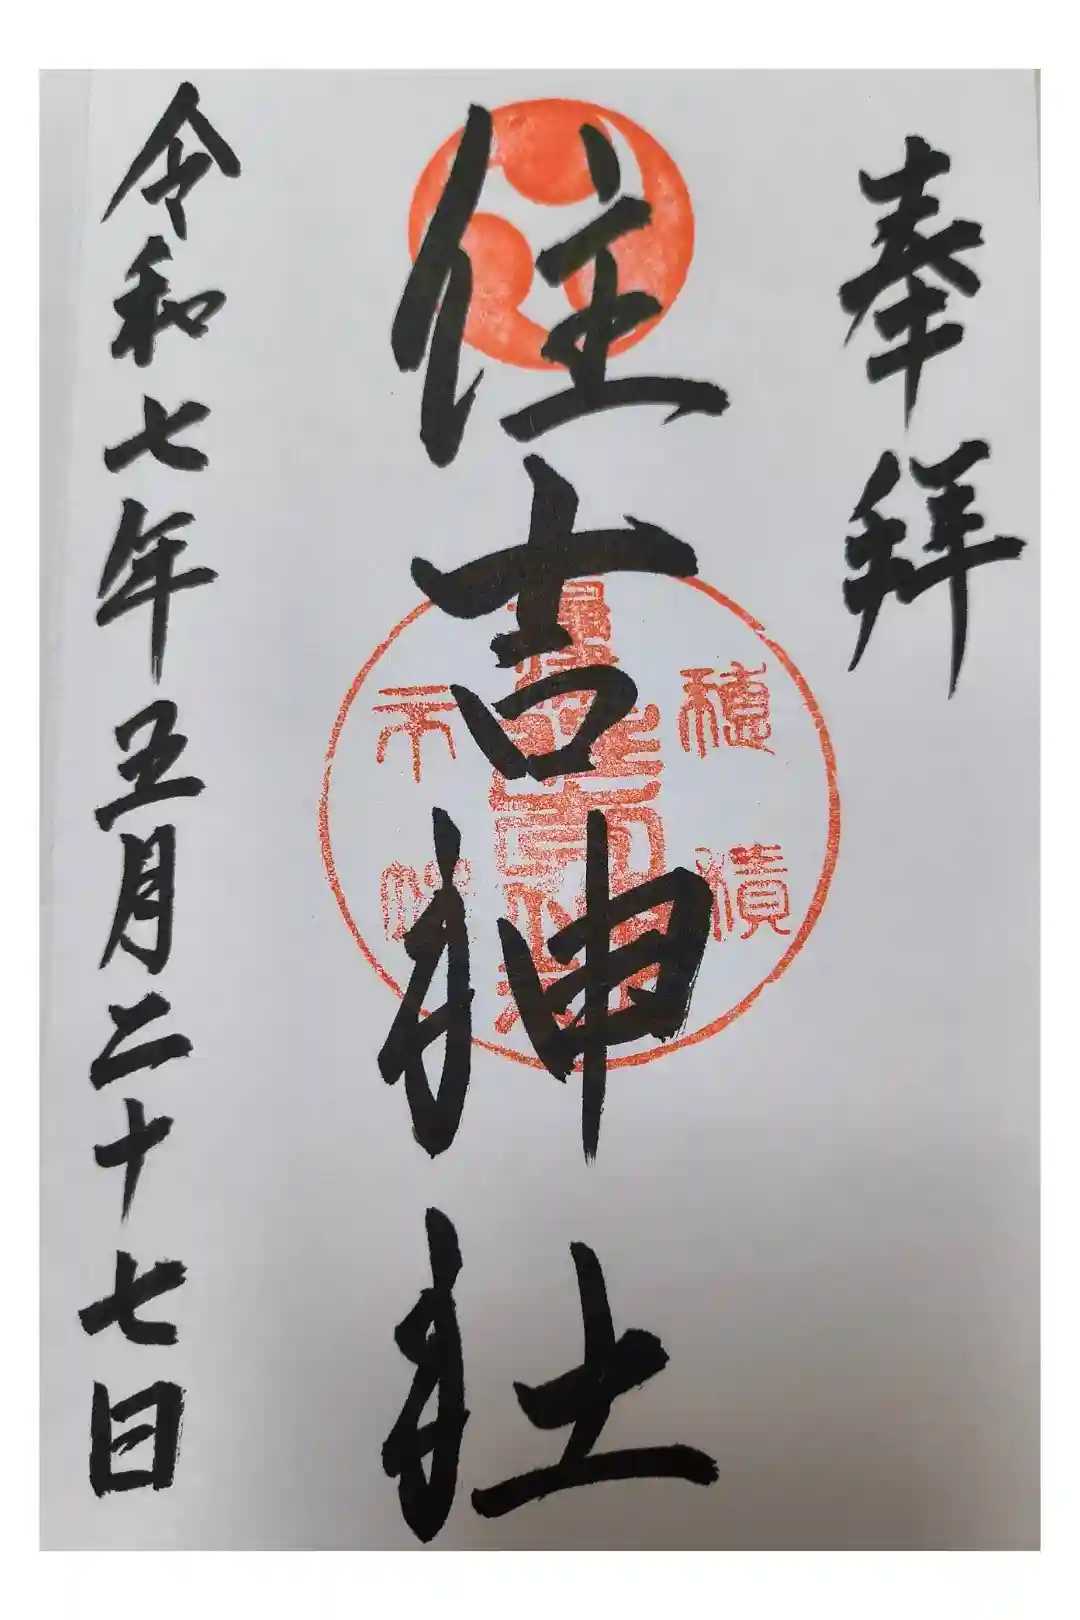 奉拝
住吉神社
令和七年五月二十七日
穂積